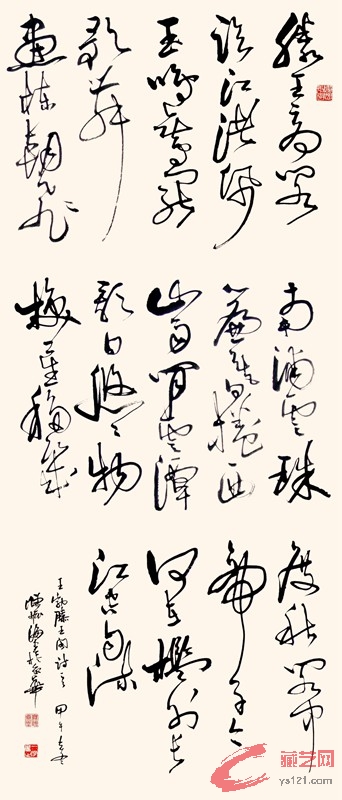 滕王高阁
临江渚佩
玉鸣鸾罢
歌舞
画栋朝飞
南浦云珠
帘暮卷西
山雨闲云潭
影日悠悠物
换星移几
度秋阁中
帝子今
何在槛外长
江空自流
王勃滕王阁诗 甲午
藏艺网
ys121.com